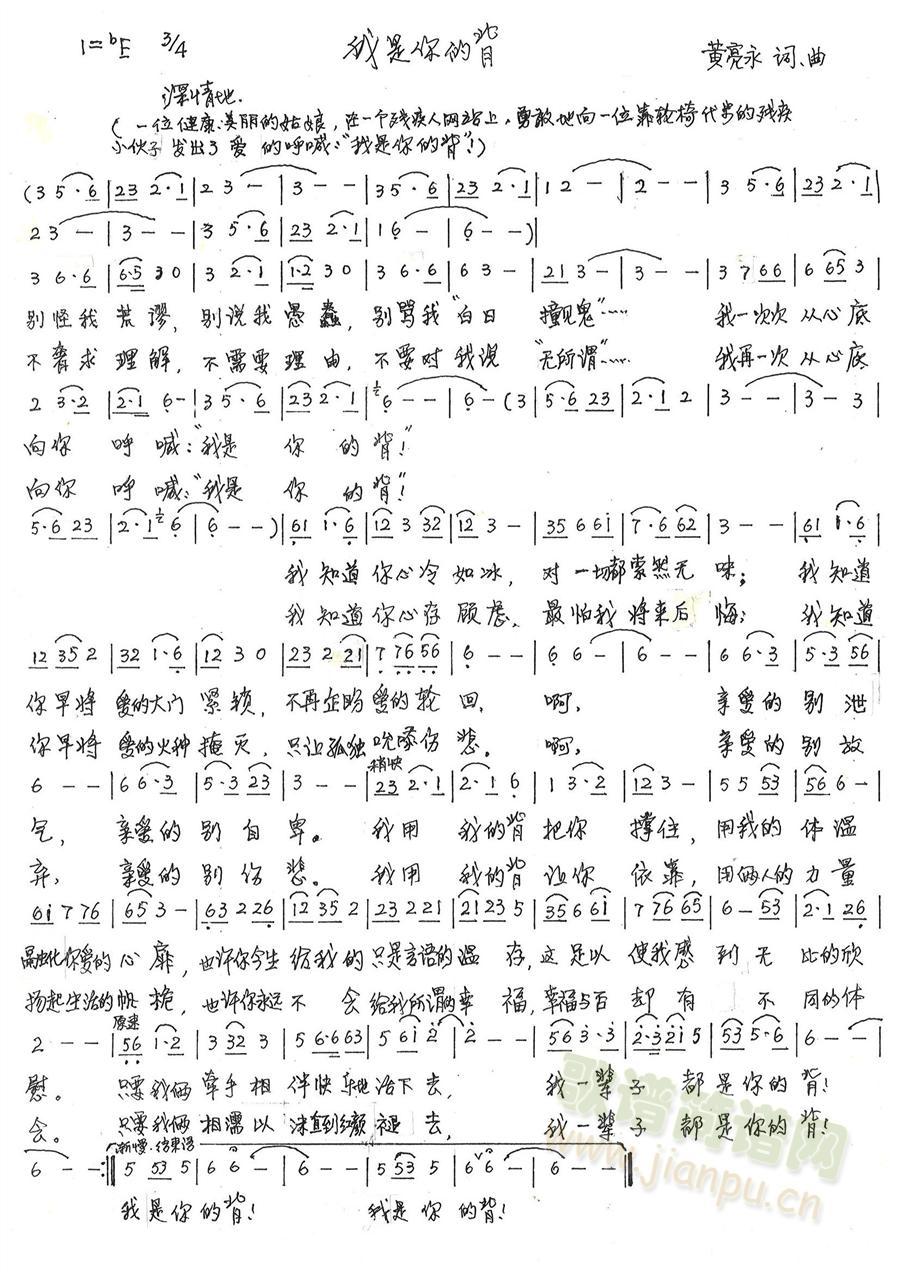 1=ᵇE 3/4 我是你的背 黄亮永 词、曲
深情地.
(一位健康.美丽的姑娘,在一个残疾人网站上,勇敢地向一位靠轮椅代步的残疾
小伙子发出了爱的呼喊:"我是你的背"!)
(3 5·6|23 2·1|2 3 -|3 - -|35·6|23 2·1|1 2 -|2 - -|3 5·6|23 2·1|
2 3 -|3 - -|3 5·6|23 2·1|1 6 -|6 - -)|
3 6·6|6·5 3 0|3 2·1|1·2 3 0|3 6·6|6 3 -|21 3 -|3 - -|3 7 66|6 65 3|
别怪我 荒谬, 别说我 愚蠢, 别骂我"白日 撞见鬼"…… 我一次次 从心底
不奢求 理解, 不需要 理由, 不要对 我说 "无所谓"…… 我再一次 从心底
2 3·2|2·1 6 -|3 5·6|23 2·1|6 - -|6 - (3|5·6 23|2·1 2|3 - -|3 - 3|
向你 呼 喊:"我是 你 的 背!"
向你 呼 喊:"我是 你 的 背"!
5·6 23|2·1 6|6 - -)|61 1·6|12 3 32|12 3 -|35 6 61|7·6 62|3 - -|61 1·6|
我知道你心冷 如冰, 对一切都索然无 味; 我知道
我知道你心存 顾虑, 最怕我将来后 悔; 我知道
12 35 2|32 1·6|12 3 0|23 2 21|7 76 56|6 - -|6 6 -|6 - -|6 6·3|5·3 56|
你早将 爱的大门 紧锁, 不再企盼 爱的轮 回, 啊, 亲爱的 别 泄
你早将 爱的火种 掩灭, 只让孤独 吮啄伤 悲。 啊, 亲爱的 别 放
稍快
6 - -|6 6·3|5·3 23|3 - -|23 2·1|2·1 6|1 3·2|12 3 -|5 5 53|56 6 -|
气, 亲爱的 别 自 卑。 我用 我的背 把你 撑住, 用我的 体温
弃, 亲爱的 别 伤 悲。 我用 我的背 让你 依靠, 用俩人的 力量
61 7 76|65 3 -|63 2 26|12 35 2|23 2 21|21 23 5|35 6 61|7 76 65|6 - 53|2·1 26|
融化你爱的 心 扉, 也许你今生 给我的 只是言语的温 存,这是以 使我感 到 无 比的欣
扬起生活的 帆 桅, 也许你永远 不 会 给我所谓的幸 福,幸福与否 却 有 不 同的体
原速
2 - -|56 1·2|3 32 3|5 6·6 63|5 6i 2|2 - -|56 3·3|2·3 2i 5|53 5·6|6 - -|
慰。 只要我俩 牵手 相 伴快乐地活下 去, 我一辈 子 都 是你的 背!
会。 只要我俩 相濡 以 沫直到红颜 褪 去, 我一辈 子 都 是你的 背!
渐慢.结束语
6 - -:‖5 53 5|6 6 -|6 - -|5 53 5|6 6 -|6 - -‖
我是你 的背! 我是你 的 背!
歌谱简谱网
www.jianpu.cn